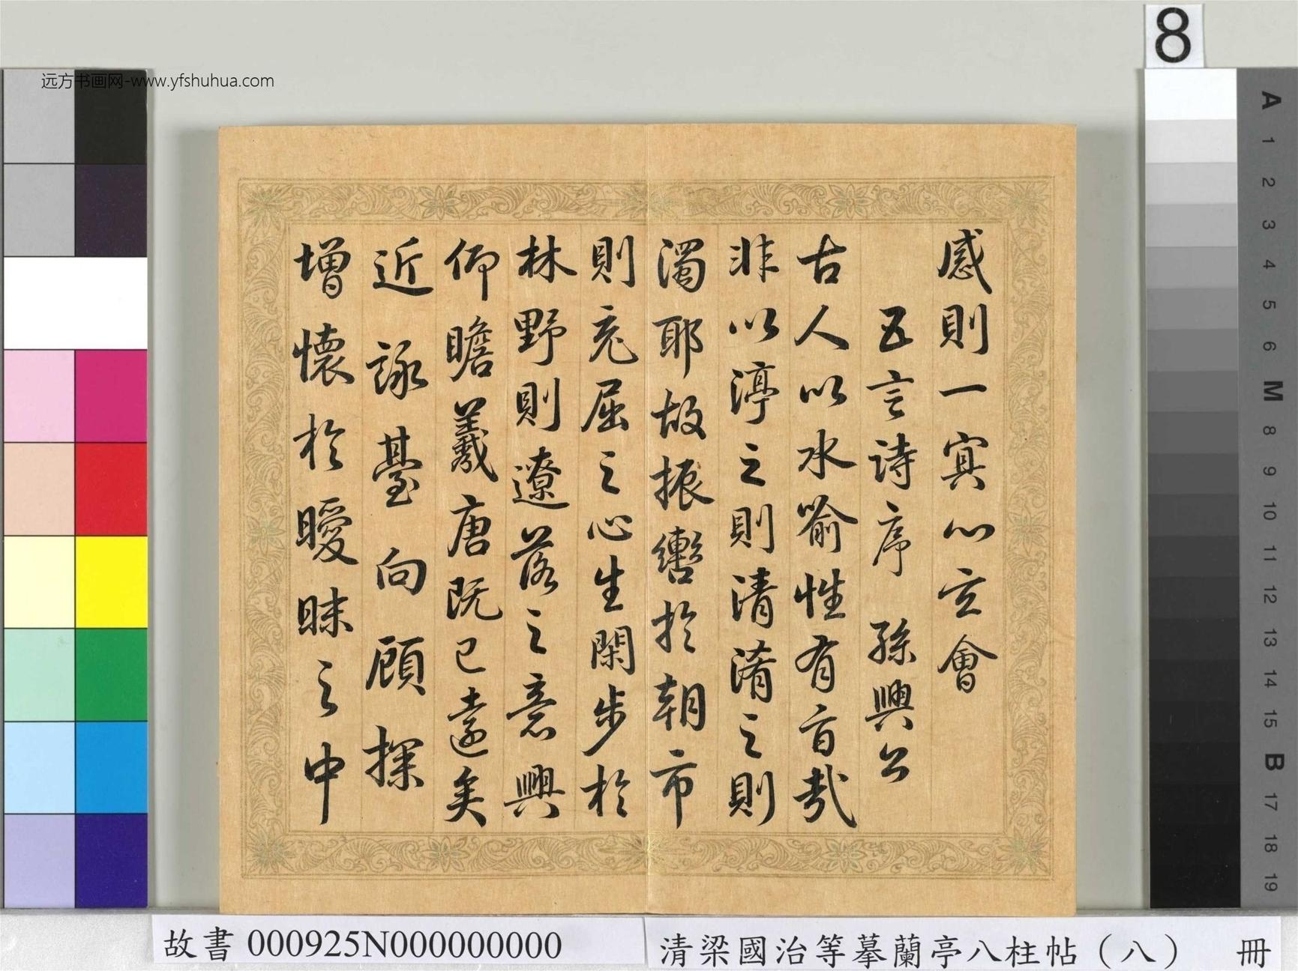 8
远方书画网-www.yfshuhua.com
感則一冥心玄會
五言詩序 孫興公
古人以水喻性有旨哉
非以渟之則清淆之則
濁耶故振轡於朝市
則充屈之心生閑步於
林野則遼落之意興
仰瞻羲唐既已遠矣
近詠臺向顧探
增懷於曖昧之中
A
1
2
3
4
5
6
M
8
9
10
11
12
13
14
15
B
17
18
19
故書000925N000000000
清梁國治等摹蘭亭八柱帖（八） 冊